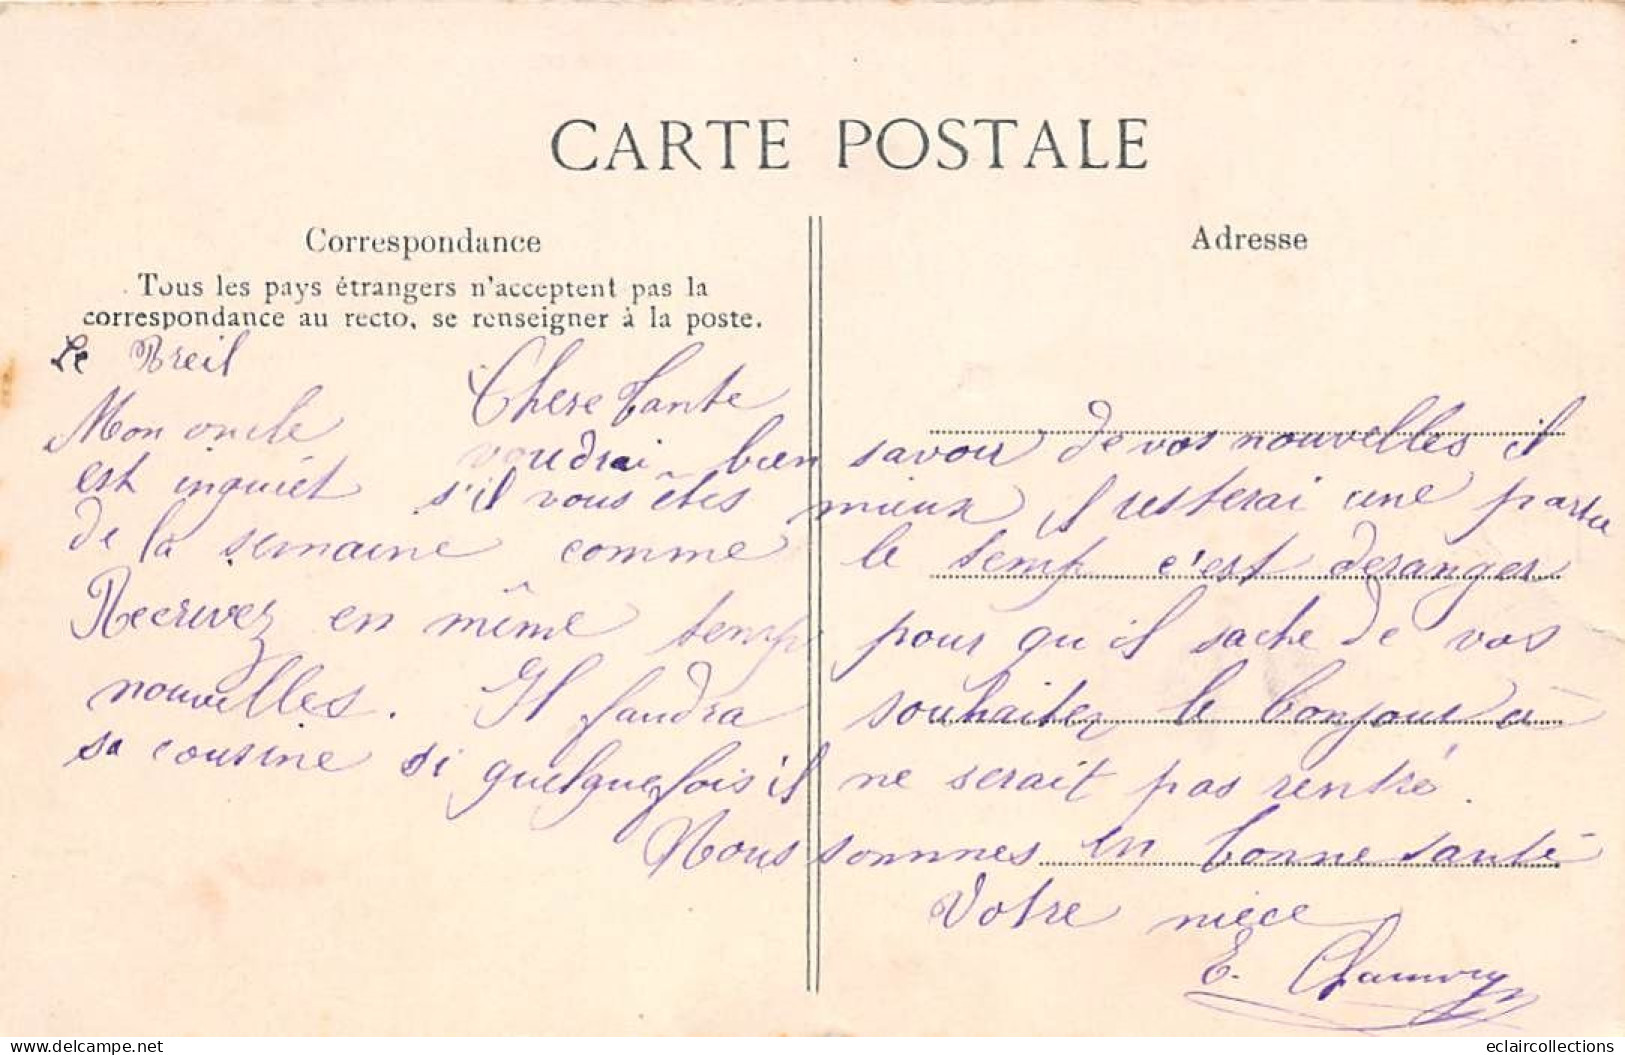 CARTE POSTALE
Correspondance
Tous les pays étrangers n'acceptent pas la
correspondance au recto, se renseigner à la poste.
Adresse
Le Breil
Chere tante
Mon oncle voudrai bien savoir de vos nouvelles il
est inquiet s'il vous êtes mieux il resterai une partie
de la semaine comme le temp c'est deranger
Recrivez en même temp pour qu'il sache de vos
nouvelles. Il faudra souhaiter le bonjour à
sa cousine si quelquefois il ne serait pas rentré.
Nous sommes en bonne santé
Votre niece
E.
eclaircollections